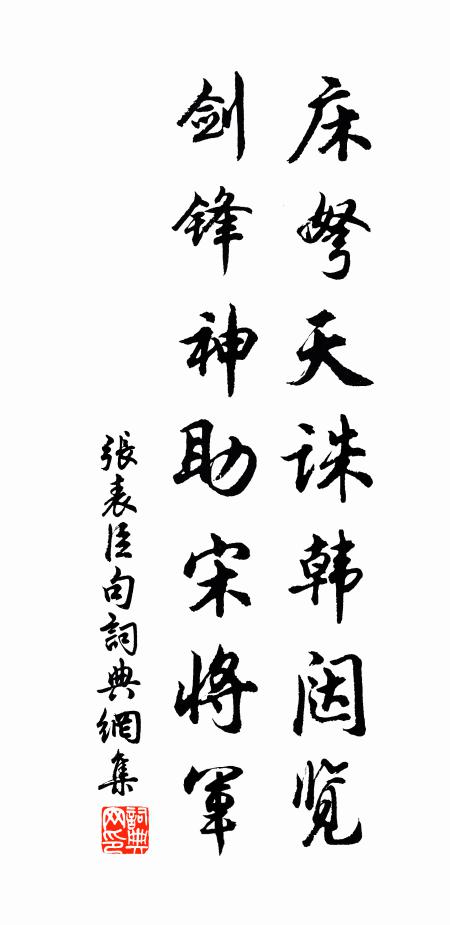 床弩天诛韩闼览
剑锋神助宋將軍
張表臣句詞典網集
詞典
网印